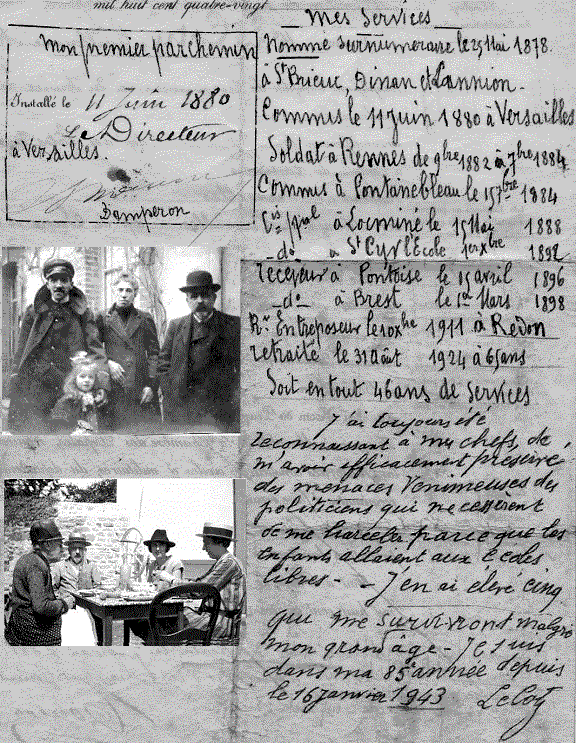 mil huit cent quatre-vingt
mon premier parchemin
Installé le 11 Juin 1880
Le Directeur
à Versailles.
Damperon
Mes Services
Nommé surnumeraire le 25 Mai 1878.
à St Brieuc, Dinan et Lannion.
Commis le 11 Juin 1880 à Versailles
Soldat à Rennes de 9bre 1882 à 7bre 1884
Commis à Fontainebleau le 15 7bre 1884
Cis ppal à Locminé le 15 Mai 1888
-do- à St Cyr l'École 1er Xbre 1892
receveur à Pontoise le 15 avril 1896
-do- à Brest le 1er Mars 1898
Rr Entreposeur le 10 Xbre 1911 à Redon
retraité le 31 Août 1924 à 65 ans
Soit en tout 46 ans de services
J'ai toujours été
reconnaissant à mes chefs, de
m'avoir efficacement préservé
des menaces venimeuses des
politiciens qui ne cessèrent
de me harceler parce que les
enfants allaient aux écoles
libres - - J'en ai élevé cinq
que me survivront malgré
mon grand âge - Je suis
dans ma 85e année depuis
le 16 janvier 1943